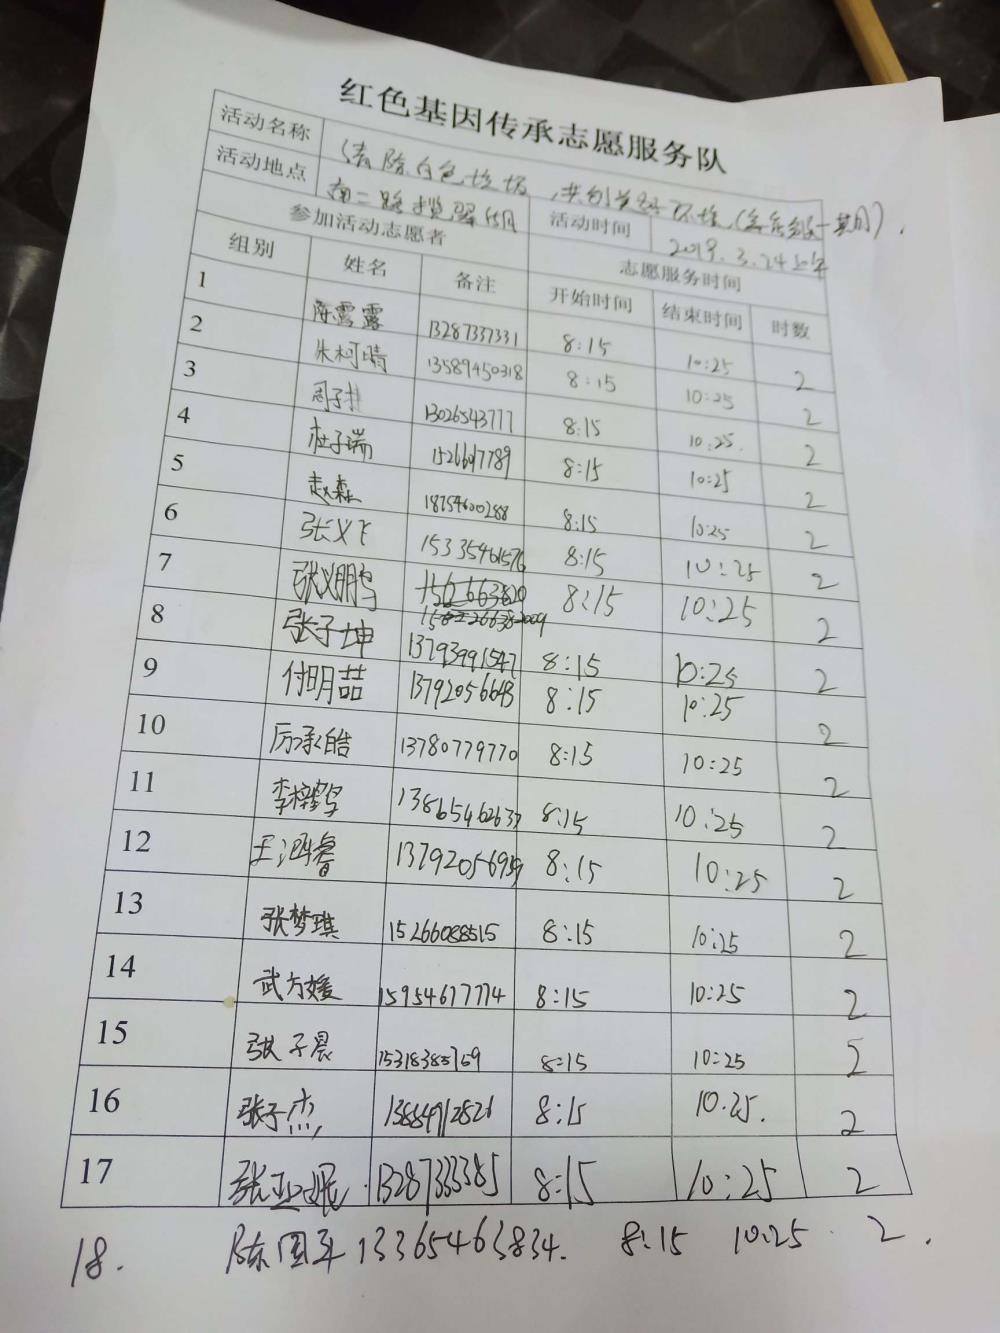 红色基因传承志愿服务队
活动名称 清除白色垃圾,共创美好环境
活动地点 南二路 活动时间 2019.3.24上午
参加活动志愿者 志愿服务时间
组别 姓名 备注 开始时间 结束时间 时数
1 陈露露 13287337331 8:15 10:25 2
2 朱柯晴 13589450318 8:15 10:25 2
3 周子 13026543777 8:15 10:25. 2
4 杜子瑞 8:15 10:25 2
5 赵森 18754600288 8:15 10:25 2
6 张义飞 15335461576 8:15 10:25 2
7 张义鹏 8:15 10:25 2
8 张子坤 13793991547 8:15 10:25 2
9 付明喆 13792056643 8:15 10:25 2
10 厉承皓 13780779770 8:15 10:25 2
11 李梓 13865462637 8:15 10:25 2
12 王泓睿 8:15 10:25 2
13 张梦琪 15266088515 8:15 10:25 2
14 武方媛 15954677774 8:15 10:25 2
15 张子晨 15318385759 8:15 10:25 2
16 张子杰 8:15 10.25. 2
17 13287333385 8:15 10:25 2
18. 陈国军 13365463834. 8:15 10:25 2.